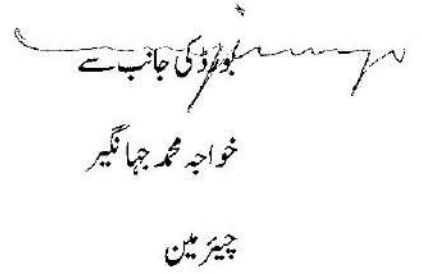 بورڈ کی جانب سے
خواجہ محمد جہانگیر
چیئرمین